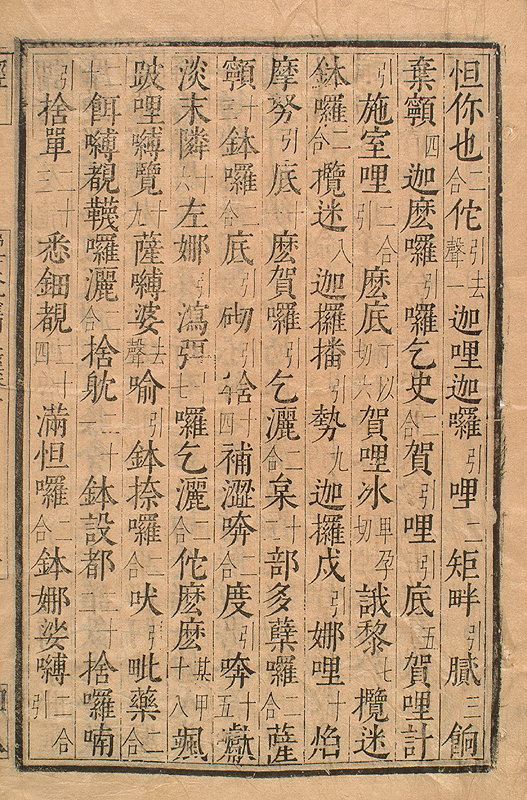 怛你也二合佗引去聲一迦哩迦囉引哩二矩畔引膩三餉
棄寧四迦麼囉引囉乞史二合賀引哩引底五賀哩計
引施室哩二合引麼底可以切六賀哩冰卑孕切誐黎七攬迷
鉢囉二合攬迷八迦攞播引勢九迦攞戍引娜哩十焰
摩努引底十麼賀囉引乞灑二合部多孽囉二合薩
頸十鉢囉二合底引砌引捨十四補澀二合度引十五
淡末隣十六左娜引瀉彈十七囉乞灑二合佗麼麼某甲十八颯
跛哩嚩覽十九薩嚩婆去聲喻引鉢捺囉二合吠引毗藥二合
十餌嚩覩韈囉灑二合捨二十一鉢設都二十捨囉喃
引捨單二十三悉鈿覩二十四滿怛囉二合鉢娜娑嚩二合引